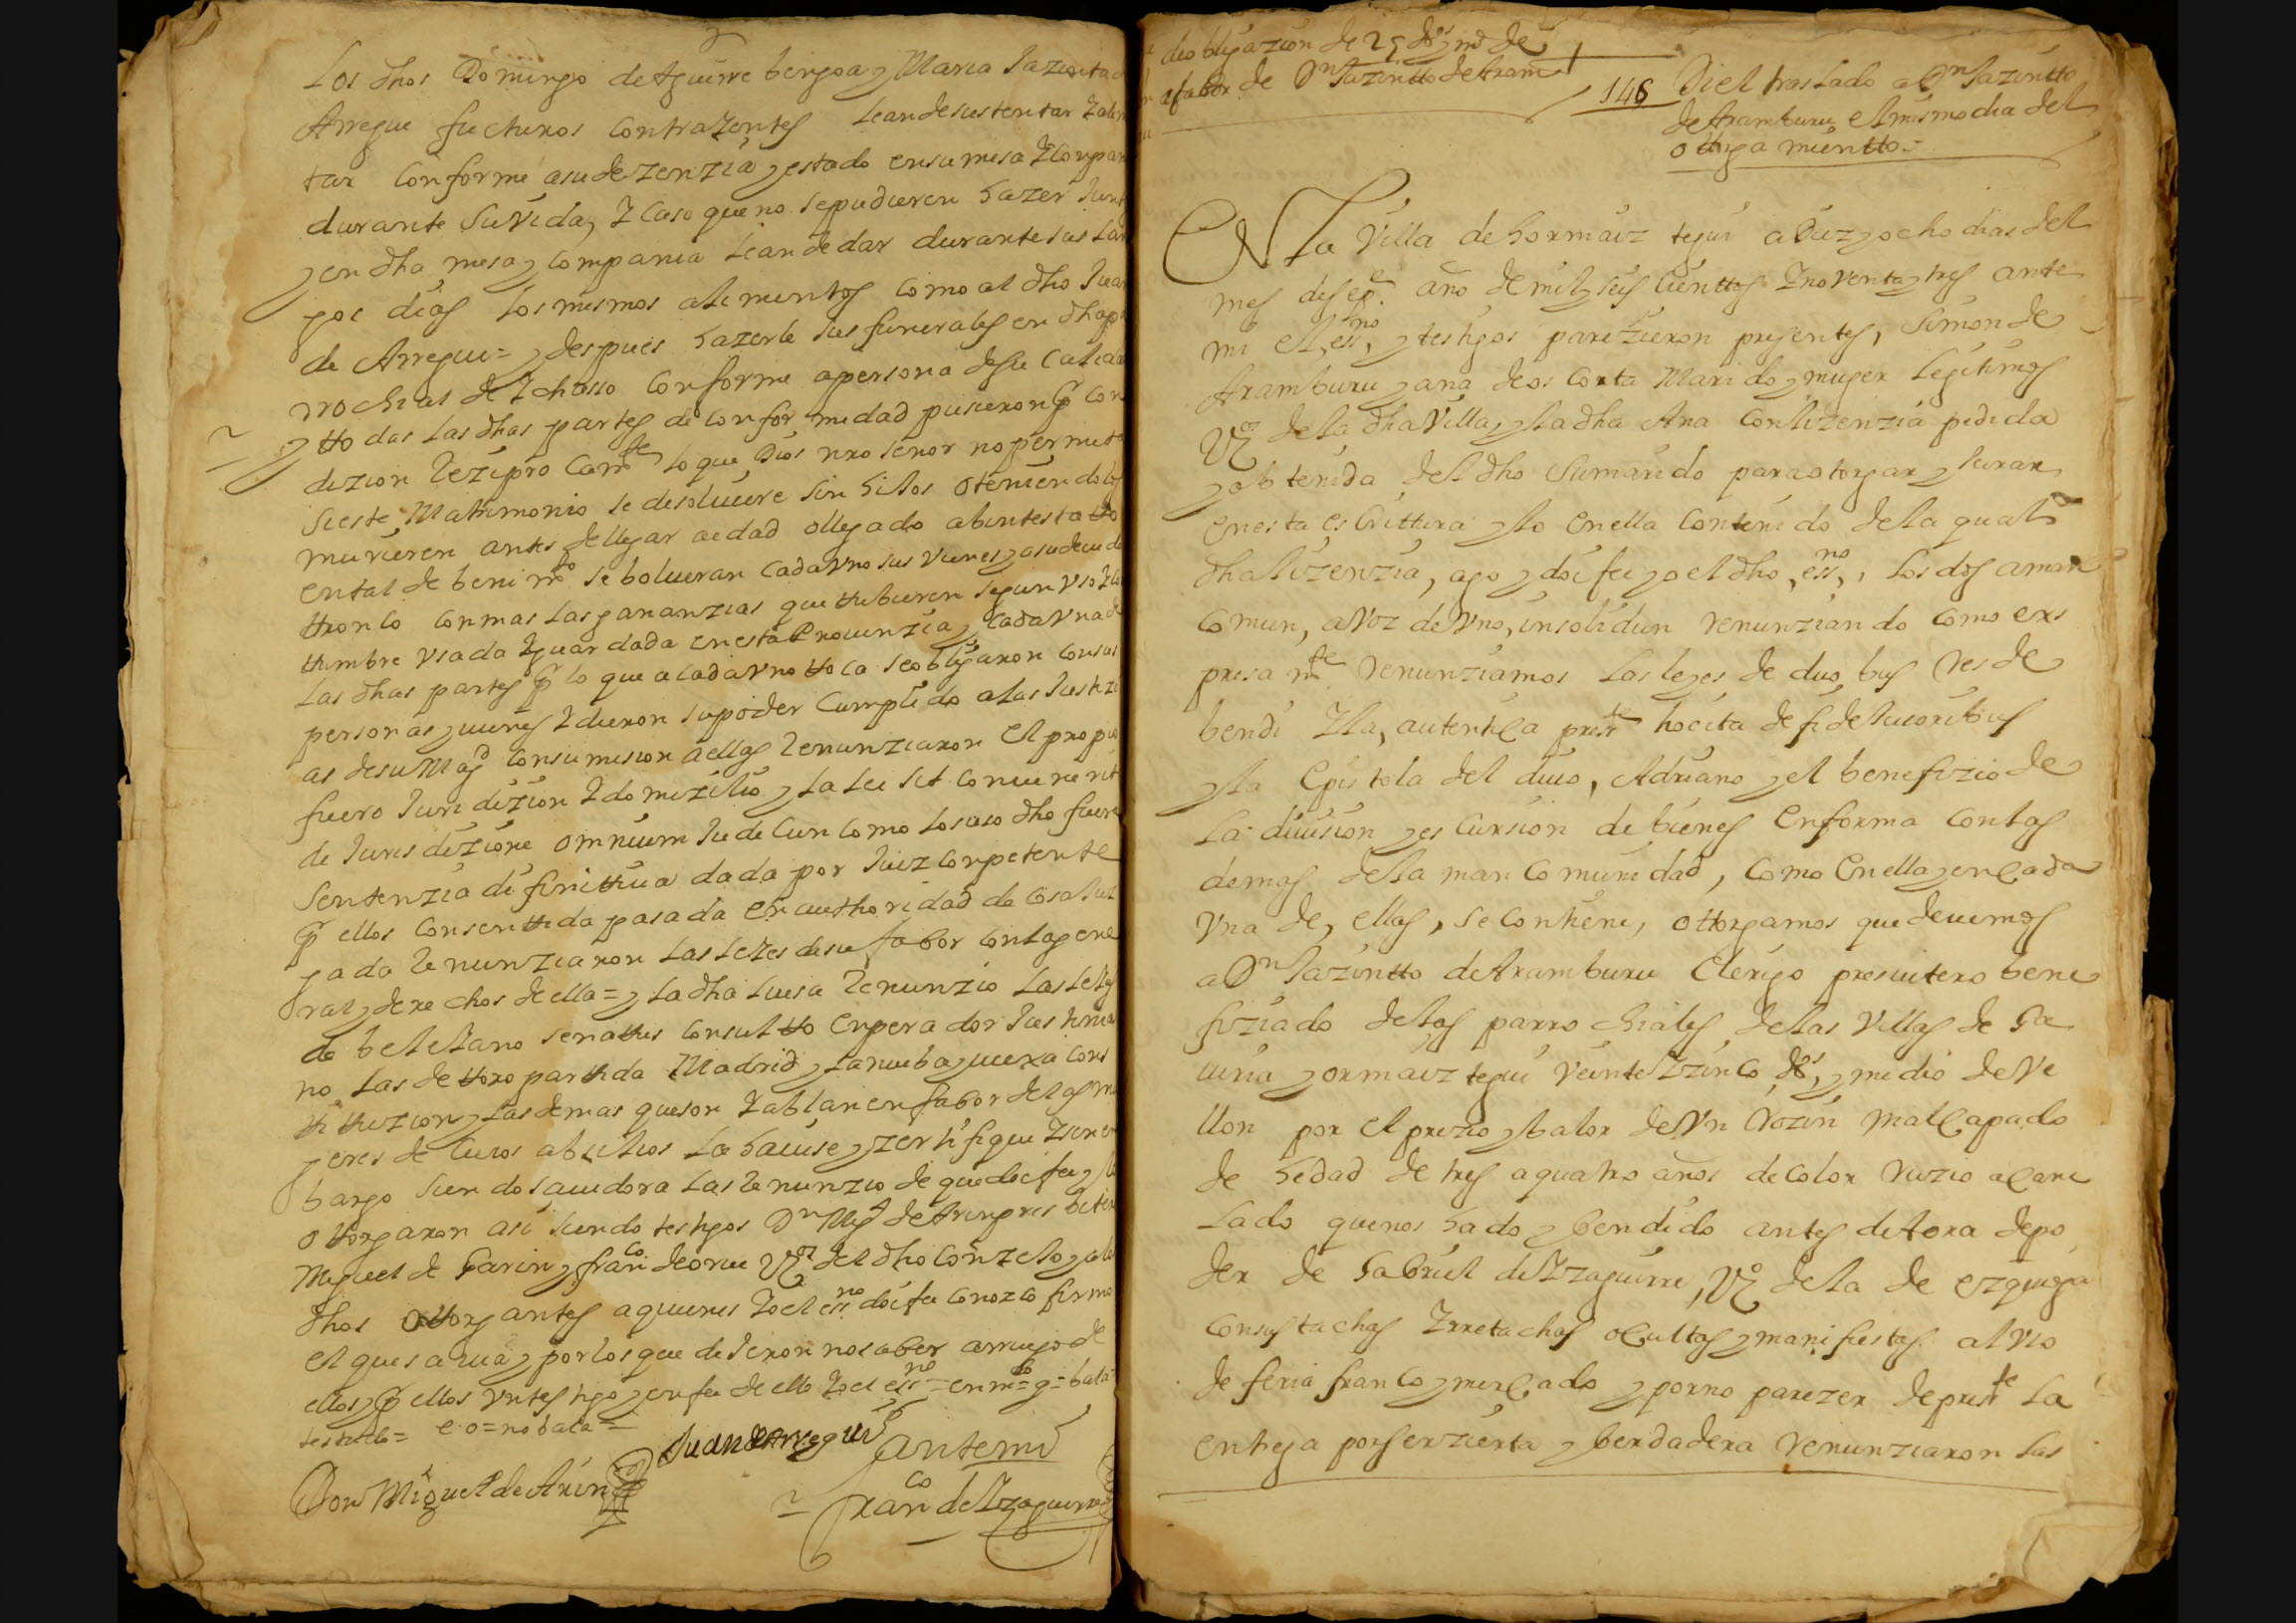 Los dhos Domingo de Aguirre bergoa y Maria Jazinta de
Arregui fucturos contrayentes sean de sustentar y alim
tar conforme a su dezenzia y estado en su mesa y conpañ
durante su vida, y caso que no se pudieren hazer junt
y en dha mesa y compania sean de dar durante sus lar
gos dias los mismos alimentos como al dho Juan
de Arregui = y despues hazerle sus funerales en dha pa
rrochial de Ychasso conforme a persona de su calidad
y ttodas las dhas partes de conformidad pusieron por con
dizion rezipro camte lo que Dios nro señor no permita
si este Matrimonio se disoluiere sin hijos o teniendolos
murieren antes de llegar a edad o llegado abintestatto
en tal de beni mto se bolueran cada vno sus vienes a su deuido
ttronco con mas las gananzias que ttubieren segun vso y cos
ttumbre vsada y guardada en esta Prouinzia, y cada vna de
las dhas partes por lo que a cada vno ttoca se obligaron con sus
personas y vienes y dieron su poder cumplido a las Justizi
as de su Magd con sumision a ellas renunziaron el propio
fuero Juridizion y domizilio y la lei sit conuenerit
de Jurisdizione omnium Judicun como si lo suso dho fuera
sentenzia difinittiua dada por Juez conpetente
por ellos consenttida pasada en authoridad de cosa Juz
gada renunziaron las leyes de su fabor con la gene
ral y derechos de ella = y la dha Luisa renunzio las leyes
de beleiano senattus consultto enperador Justinia
no las de ttoro partida Madrid y la nueba y vieja cons
tittuzion y las demas que son y ablan en fabor de las mu
geres de cuios abxilios la hauise y zertifique y sin en
bargo siendo sauidora las renunzio de que doi fee y lo
ottorgaron asi siendo testigos Dn Migl de Arin presbitero
Miguel de Garin y franco de orue Vzos del dho Conzejo y a los
dhos ottorgantes a quienes yo el essno doi fee conozco firmo
el que sauia y por los que dijeron no saber a ruego de
ellos y por ellos vn testigo y en fee de ello yo el essno = en mdo = g = bala
testado = e o = no bala =
Juan de Arregui
ante mi
Don Miguel de Arin
franco de Yzaguirre
obligazion de 25 ds y mo de
a fabor de Dn Jazintto de Aram
146
Di el traslado a Dn Jazintto
de Aramburu el mismo dia del
ottorgamientto =
EN la Villa de hormaiztegui a Diez y ocho dias del
mes de seps año de mil y seis cienttos y noventa y tres ante
mi el essno y testigos parezieron presentes, Simon de
Aramburu y ana de os corta Marido y muger legitimos
Vzos de la dha Villa, y la dha Ana con lizenzia pedida
y obtenida del dho su marido para otorgar y Jurar
en esta escrittura y lo en ella contenido de la qual
dha lizenzia, ago y doi fee yo el dho essno, los dos a man
comun, a voz de vno, insolidun renunziando como exs
presa mte renunziamos las leyes de duobus res de
bendi y la autentica preste hocita de fidejusoribus
y la epistola del diuo, Adriano y el benefizio de
la diuision y escursion de bienes en forma con las
demas de la mancomunidad, como en ella y en cada
vna de, ellas, se contiene, ottorgamos que deuemos
a Dn Jazintto de Aramburu Clerigo presuitero bene
fiziado de las parrochiales de las villas de Ga
uiria y ormaiztegui veinte y zinco ds, y medio de ve
llon por el prezio y balor de vn Rozin mal capado
de hedad de tres a quatro años de color ruzio a cane
lado que nos ha do y bendido antes de aora de po
der de Gabriel de Yzaguirre, Vzo de la de ezquioga
con sus tachas y rretachas ocultas y manifiestas al vso
de feria franco y mercado y por no parezer de preste la
entrega por ser zierta y berdadera renunziaron las